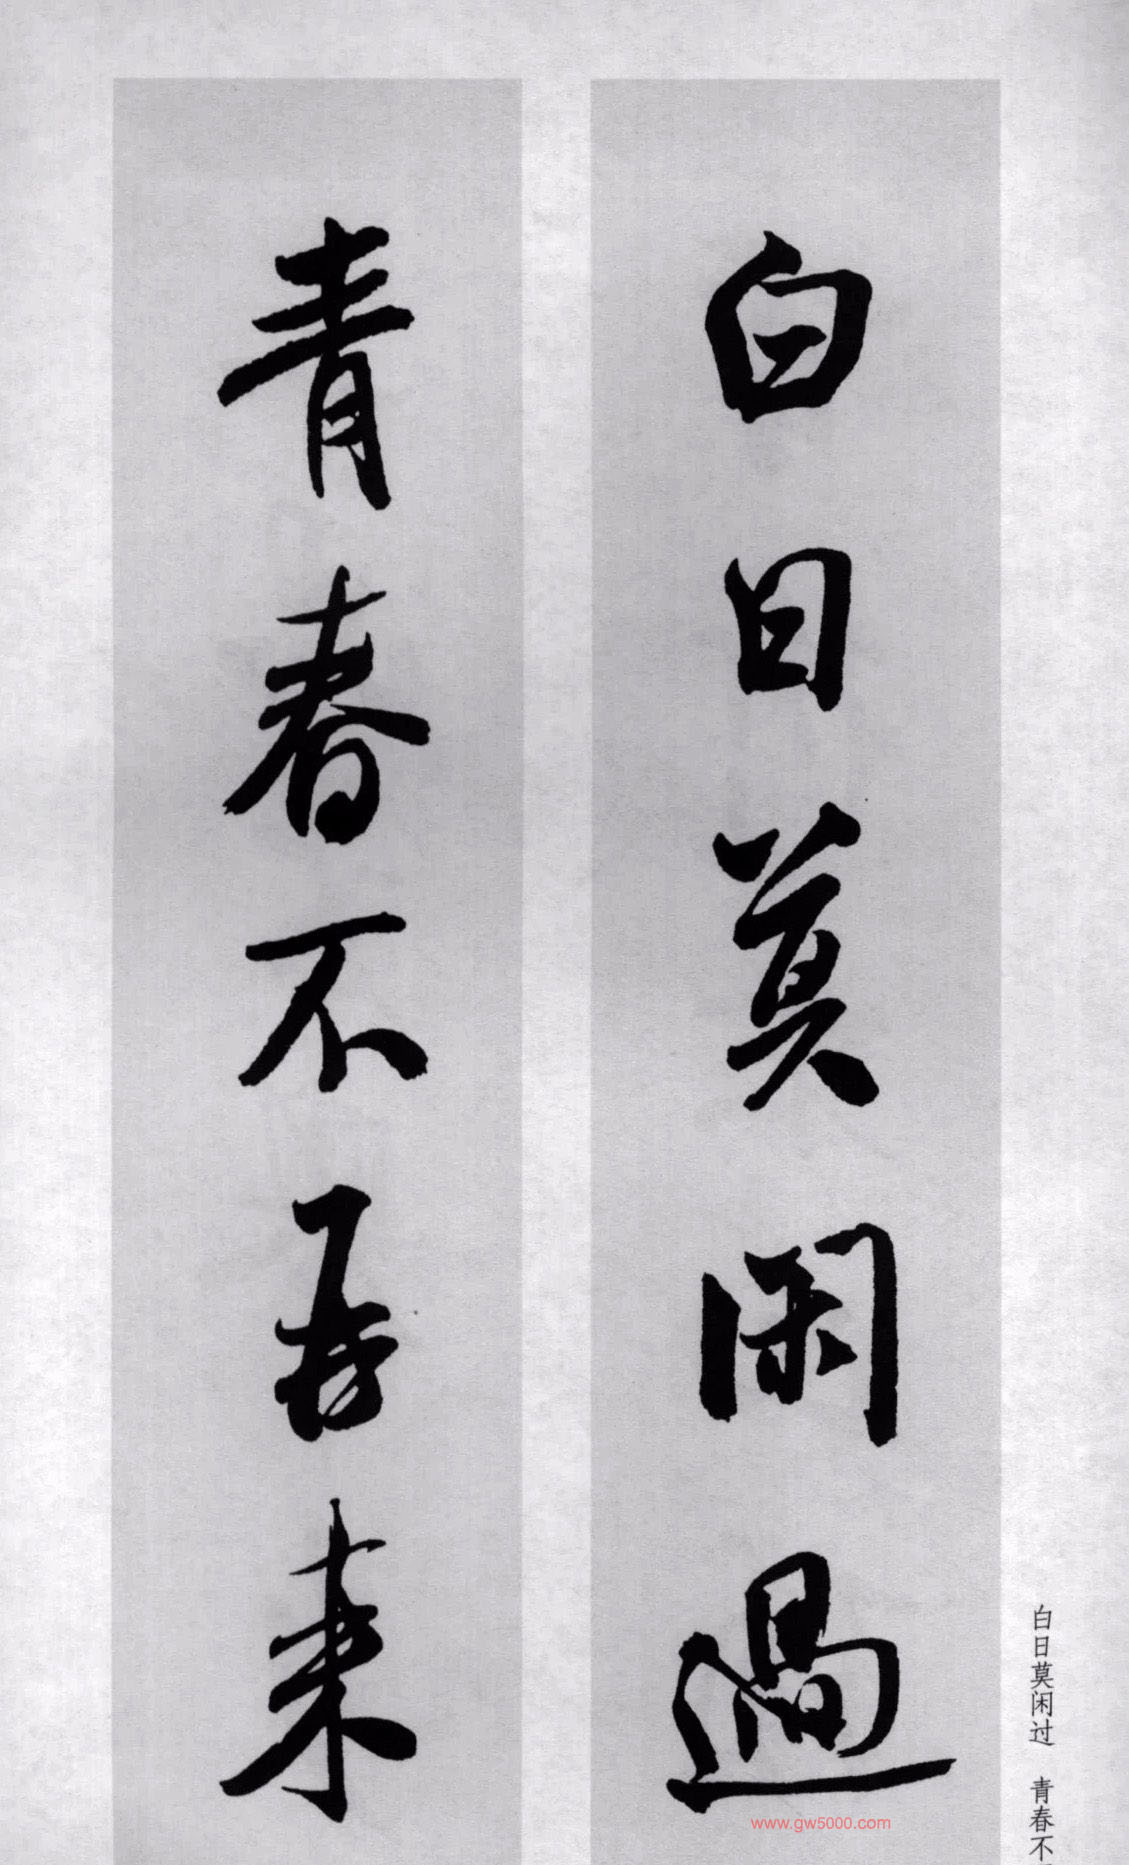 白日莫閑過
青春不再来
白日莫闲过 青春不
www.gw5000.com